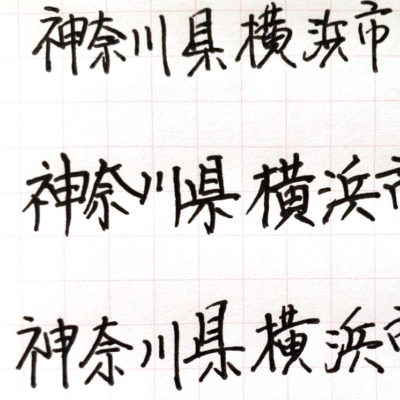 神奈川県横浜市
神奈川県横浜市
神奈川県横浜市